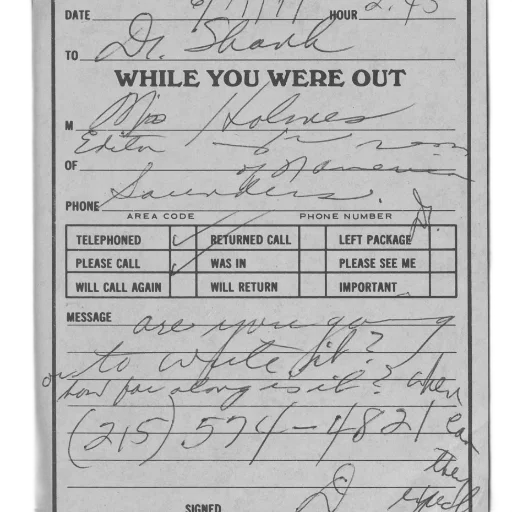 DATE HOUR 2:45
TO Dr. Shank
WHILE YOU WERE OUT
M Mrs Holmes
Editor
OF of N America
Saunders.
PHONE
AREA CODE PHONE NUMBER
TELEPHONED ✓ RETURNED CALL LEFT PACKAGE
PLEASE CALL ✓ WAS IN PLEASE SEE ME
WILL CALL AGAIN WILL RETURN IMPORTANT
MESSAGE are you going
to write it?
or how far along is it? When
(215) 574-4821 can
they
expect
SIGNED D